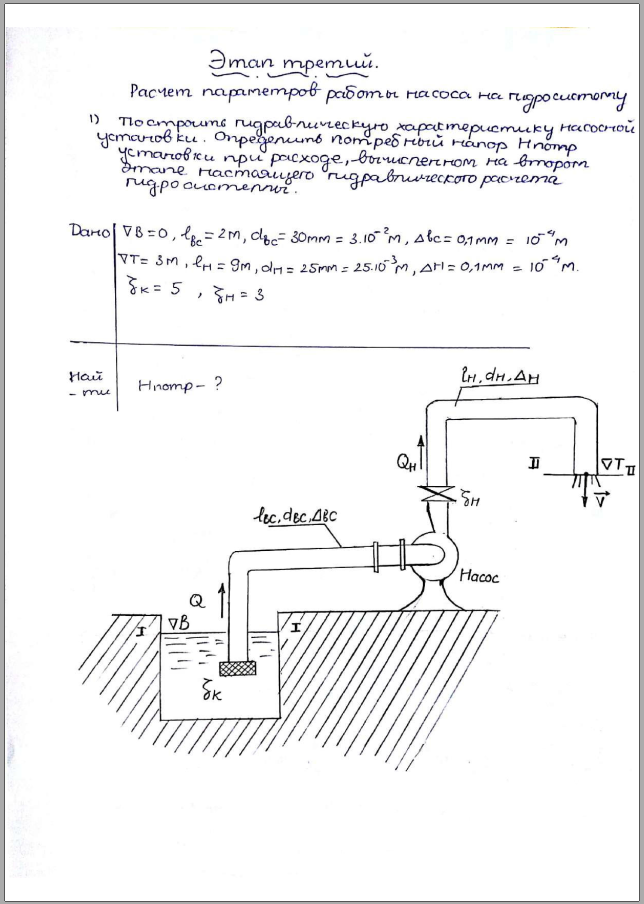 Этап третий.
Расчет параметров работы насоса на гидросистему
1) Построить гидравлическую характеристику насосной
установки. Определить потребный напор Hпотр
установки при расходе, вычисленном на втором
этапе настоящего гидравлического расчета
гидросистемы.
Дано
∇B=0, lвс=2м, dвс=30мм=3.10⁻²м, Δвс=0,1мм = 10⁻⁴м
∇T= 3м, lн=9м, dн=25мм=25.10⁻³м, Δн=0,1мм = 10⁻⁴м.
ζк= 5 , ζн= 3
Най
-ти
Hпотр- ?
lн, dн, Δн
Qн
II
∇T
II
V
ζн
lвс, dвс, Δвс
Насос
Q
I
∇B
I
ζк